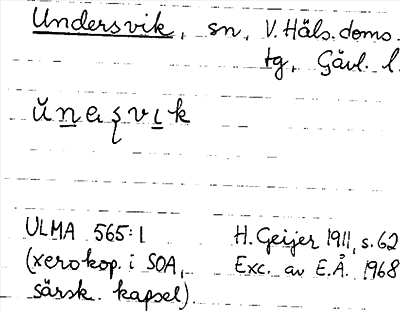 Undersvik, sn, V. Häls. doms.
tg, Gävl. l.
ŭnaşvık
ULMA 565:1 H. Geijer 1911, s. 62
(xerokop. i SOA, Exc. av E.Å. 1968
särsk. kapsel).